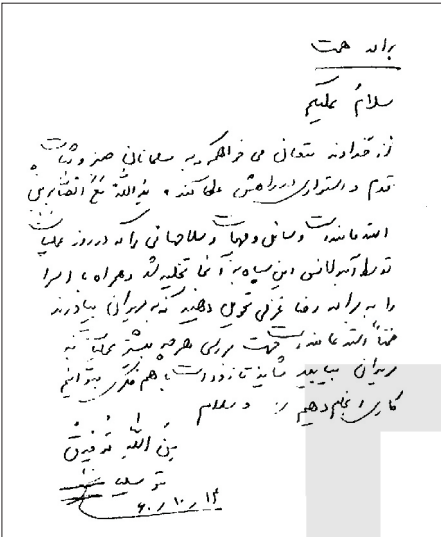 برادر همت
سلامٌ علیکم
از خداوند متعال می خواهم که به مسلمانان صبر و ثبات
قدم و استواری در راهش عطا کند، ید اللّه مَعَ
است وسائل و مهمات و سلاحهائی را که در روز عملیات
توسط آمبولانس این سپاه به آنجا تخلیه شد همراه با اسرا
را به برادر رضا غزلی تحویل دهید که به مریوان بیاورند
ضمناً است جهت بررسی هر چه بیشتر عملیات به
مریوان بیایید شاید تا زود است با هم فکری بتوانیم
کاری انجام دهیم والسلام
مِنَ اللّه توفیق

۶۰/۱۰/۱۴